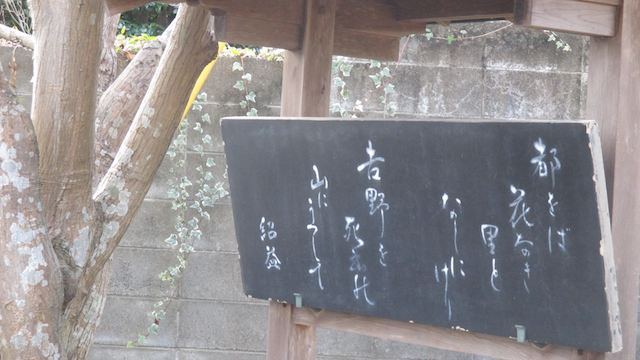 都をば
花なき
里と
なしにけり
吉野を
死出の
山にうつして
紹益